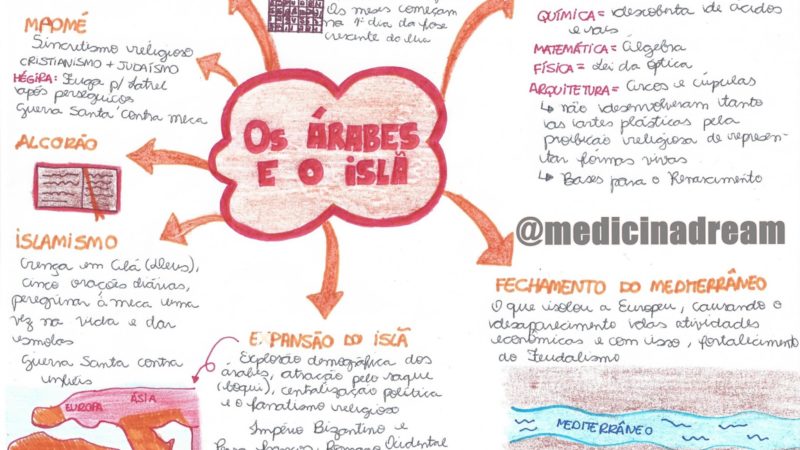 MAOMÉ
Sincretismo religioso
CRISTIANISMO + JUDAÍSMO
HÉGIRA: Fuga p/ Iatrel
após perseguições
Guerra Santa contra meca
ALCORÃO
ISLAMISMO
Crença em Alá (Deus),
cinco orações diárias,
peregrinar à meca uma
vez na vida e dar
esmolas
Guerra Santa contra
infiéis
EUROPA
ÁSIA
Os meses começam
no 1º dia da fase
crescente da lua
OS ÁRABES
E O ISLÃ
E PANSÃO DO ISLÃ
Explosão demográfica dos
árabes, atração pelo saque
(boqui), centralização política
e o fanatismo religioso
Império Bizantino e
Ocidental
QUÍMICA = descoberta de ácidos
e sais
MATEMÁTICA = Álgebra
FÍSICA = Lei da Óptica
ARQUITETURA = Arcos e cúpulas
↳ não desenvolveram tanto
as artes plásticas pela
proibição religiosa de represen-
tar formas vivas
↳ Bases para o Renascimento
@medicinadream
FECHAMENTO DO MEDITERRÂNEO
O que isolou a Europa, causando o
desaparecimento das atividades
econômicas e com isso, fortalecimento
do Feudalismo
MEDITERRÂNEO